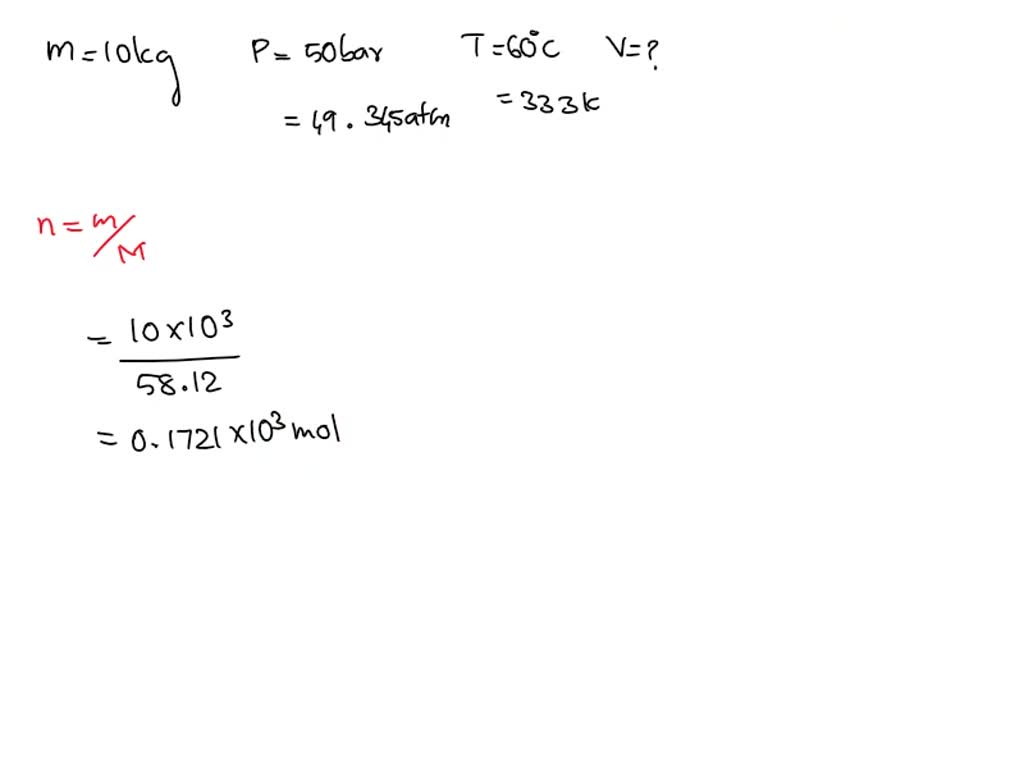 m = 10kg P = 50bar T = 60°C V = ?
= 49.345atm = 333k
n = m/M
= 10×10³
58.12
= 0.1721×10³ mol